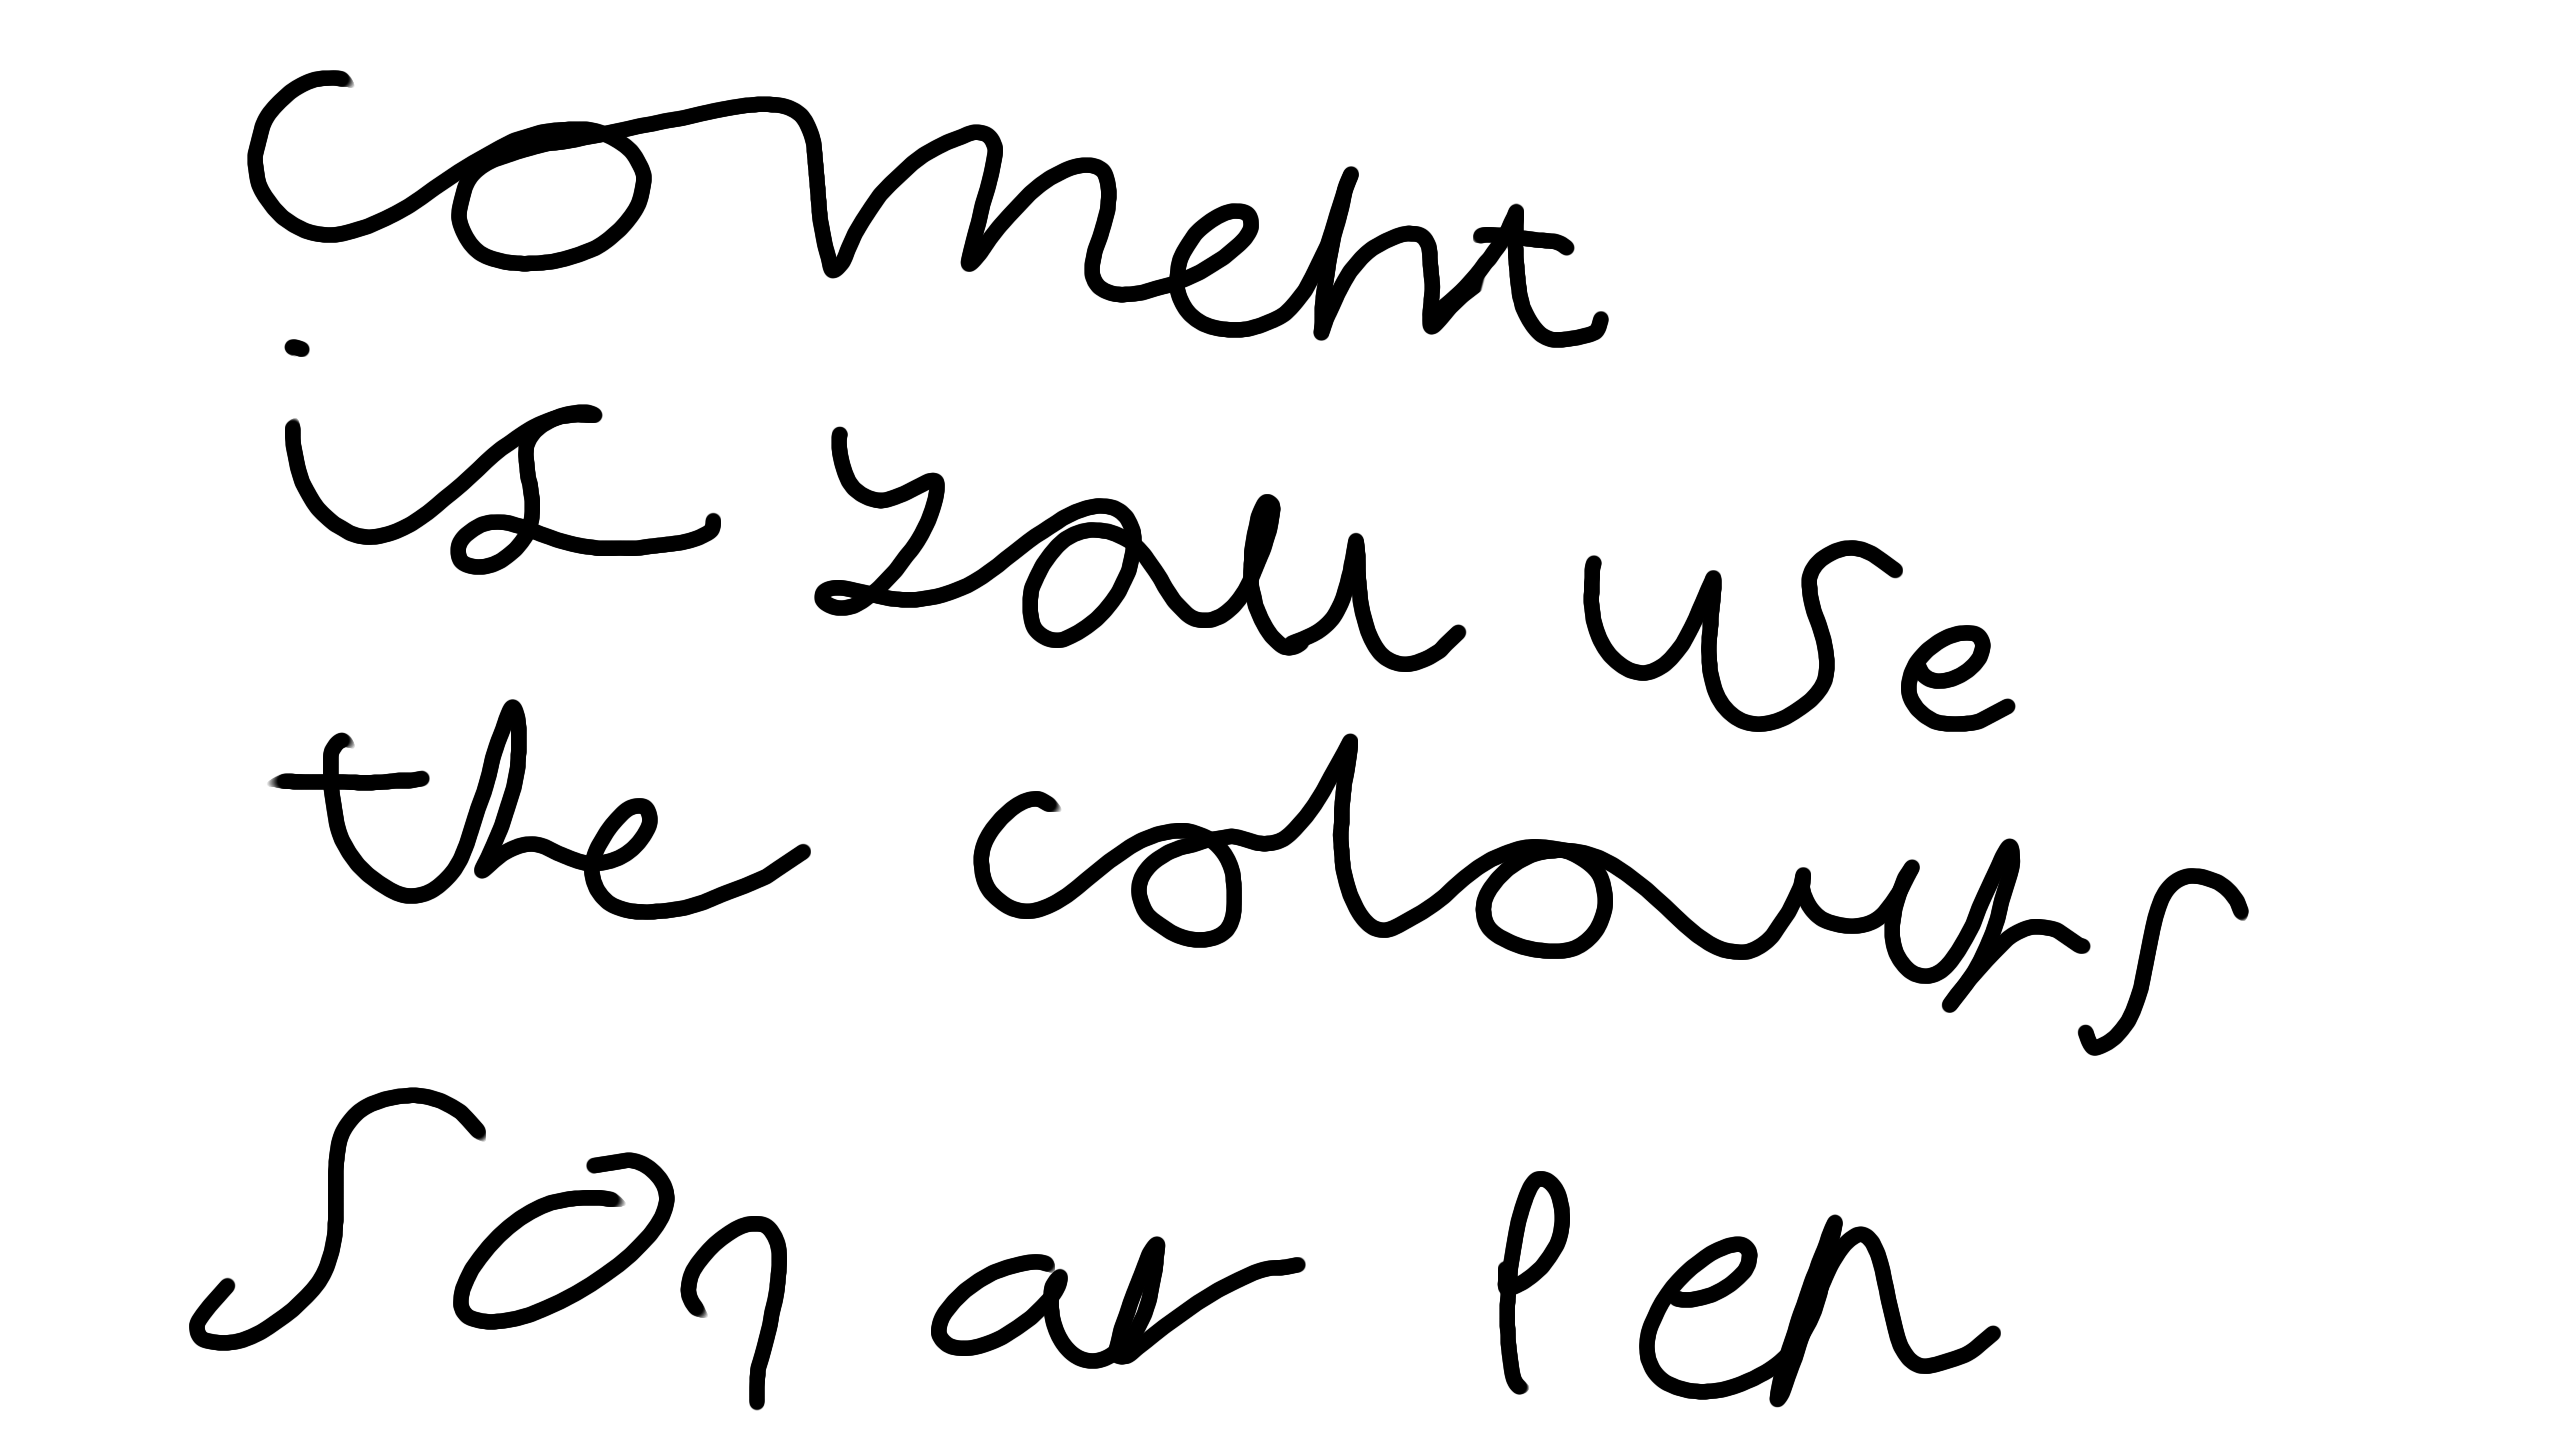 coment
is you use
the colours
son ar pen